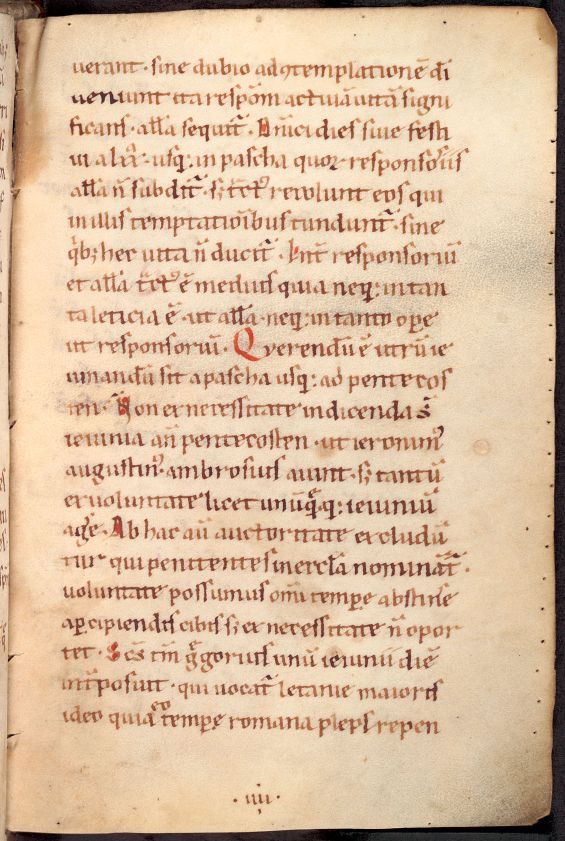 uerant · sine dubio ad ꝯtemplationē dī
ueniunt ita respōm actiuā uitā signi
ficans · all̄a sequit̄ · Amici dies siue festi
ui a lxx · usq; in pascha quoꝝ responsoriis
all̄a n̄ subdit̄ · sꝫ tct᷒ reuoluunt eos qui
in illis temptatioībus tundunt̄ · sine
qͥbꝫ hec uita n̄ ducit̄ · Int̄ responsoriū
et all̄a tct᷒ ē medius quia neq; in tan
ta leticia ē · ut all̄a · neq; in tanto oꝑe
ut responsoriū · Querendū ē utrū ie
iunandū sit a pascha usq; ad pentecos
ten · Non ex necessitate indicenda s̄
ieiunia an̄ pentecosten · ut ieronim᷒
augustin᷒ · ambrosius aiunt · sꝫ tantū
ex uoluntate licet unūq̄q; ieiuniū
agē · Ab hac aū auctoritate excludū
tur qui penitentes in eccl̄a nominat̄ ·
uoluntate possumus om̄i temꝑe abstinē
a ꝑcipiendis cibis sꝫ ex necessitate n̄ opor
tet · Scs̄ tm̄ gͣgorius unū ieiunii diē
int̄posuit · qui uocat̄ letanie maioris
ideo quia eo temꝑe romana plebs repen
· iiii ·